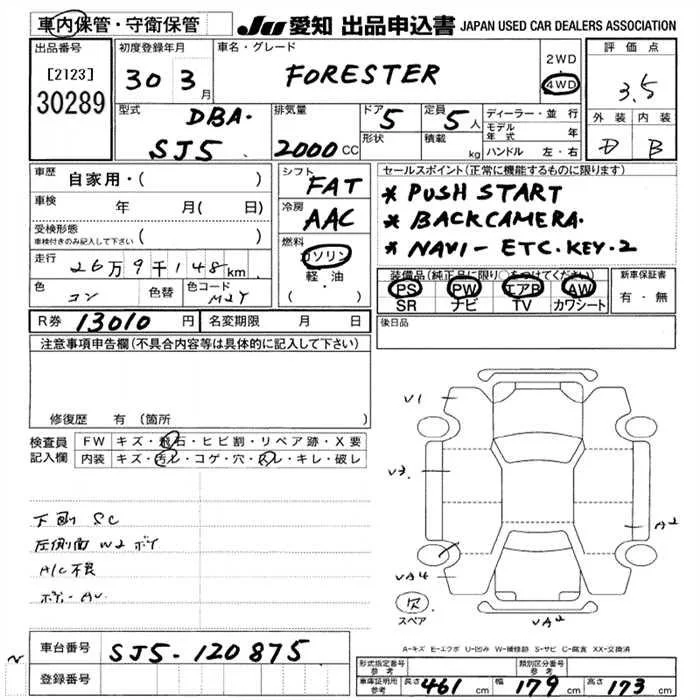 車内保管・守衛保管
JU 愛知 出品申込書 JAPAN USED CAR DEALERS ASSOCIATION
出品番号 初度登録年月 車名・グレード 2WD 評価点
[2123] 30 3月 FORESTER 4WD 3.5
30289 型式 排気量 ドア 定員 ディーラー・並行 外装 内装
DBA. 5 5人 モデル年式 年
SJ5 2000CC 形状 積載 kg ハンドル 左・右 D B
車歴 自家用・( ) シフト FAT セールスポイント(正常に機能するものに限ります)
車検 年 月( 日) 冷房 AAC * PUSH START
受検形態 ( ) * BACKCAMERA.
車検付きのみ記入して下さい 燃料 ガソリン * NAVI- ETC. KEY. 2
走行 26万9千148km 軽・油 装備品(純正品に限り○をつけてください) 新車保証書
色 コン 色替 色コード M2Y (・) PS PW エアB AW 有・無
SR ナビ TV カワシート
R券 13010円 名変期限 月 日 後日品
注意事項申告欄(不具合内容等は具体的に記入して下さい)
修復歴 有(箇所 )
検査員 FW キズ・飛石・ヒビ割・リペア跡・X要
記入欄 内装 キズ・汚レ・コゲ・穴・スレ・キレ・破レ
V1
V3
下廻 SC A2
左側面 W2
A/C不良 VA4
欠
スペア VA2
A-キズ E-エクボ U-凹み W-補修跡 S-サビ C-腐食 XX-交換済
車台番号 SJ5-120875
登録番号
形式指定番号 参考 類別区分番号 参考
車庫証明用 参考 長さ 461cm 幅 179cm 高さ 173cm